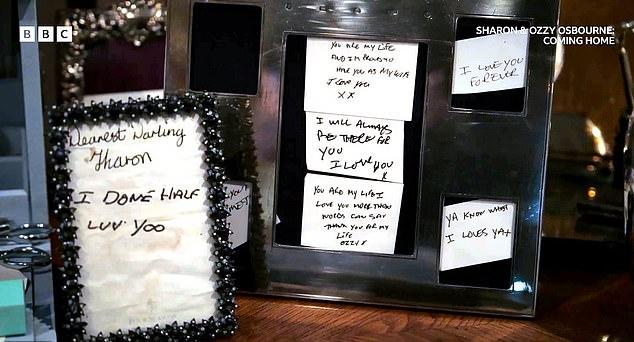 BBC
SHARON & OZZY OSBOURNE:
COMING HOME
Dearest Darling
Sharon
I DONE HALF
LUV YOO
YOU ARE MY LIFE
AND IM PROUD TO
HAVE YOU AS MY WIFE
I love you
X X
I WILL ALWAYS
BE THERE FOR
YOU
I LOVE YOU
X
YOU ARE MY LIFE I
LOVE YOU MORE THEN
WORDS CAN SAY
THANK YOU FOR MY
LIFE
OZZY X
I LOVE YOU
FOREVER
YA KNOW WHAT
I LOVES YA+